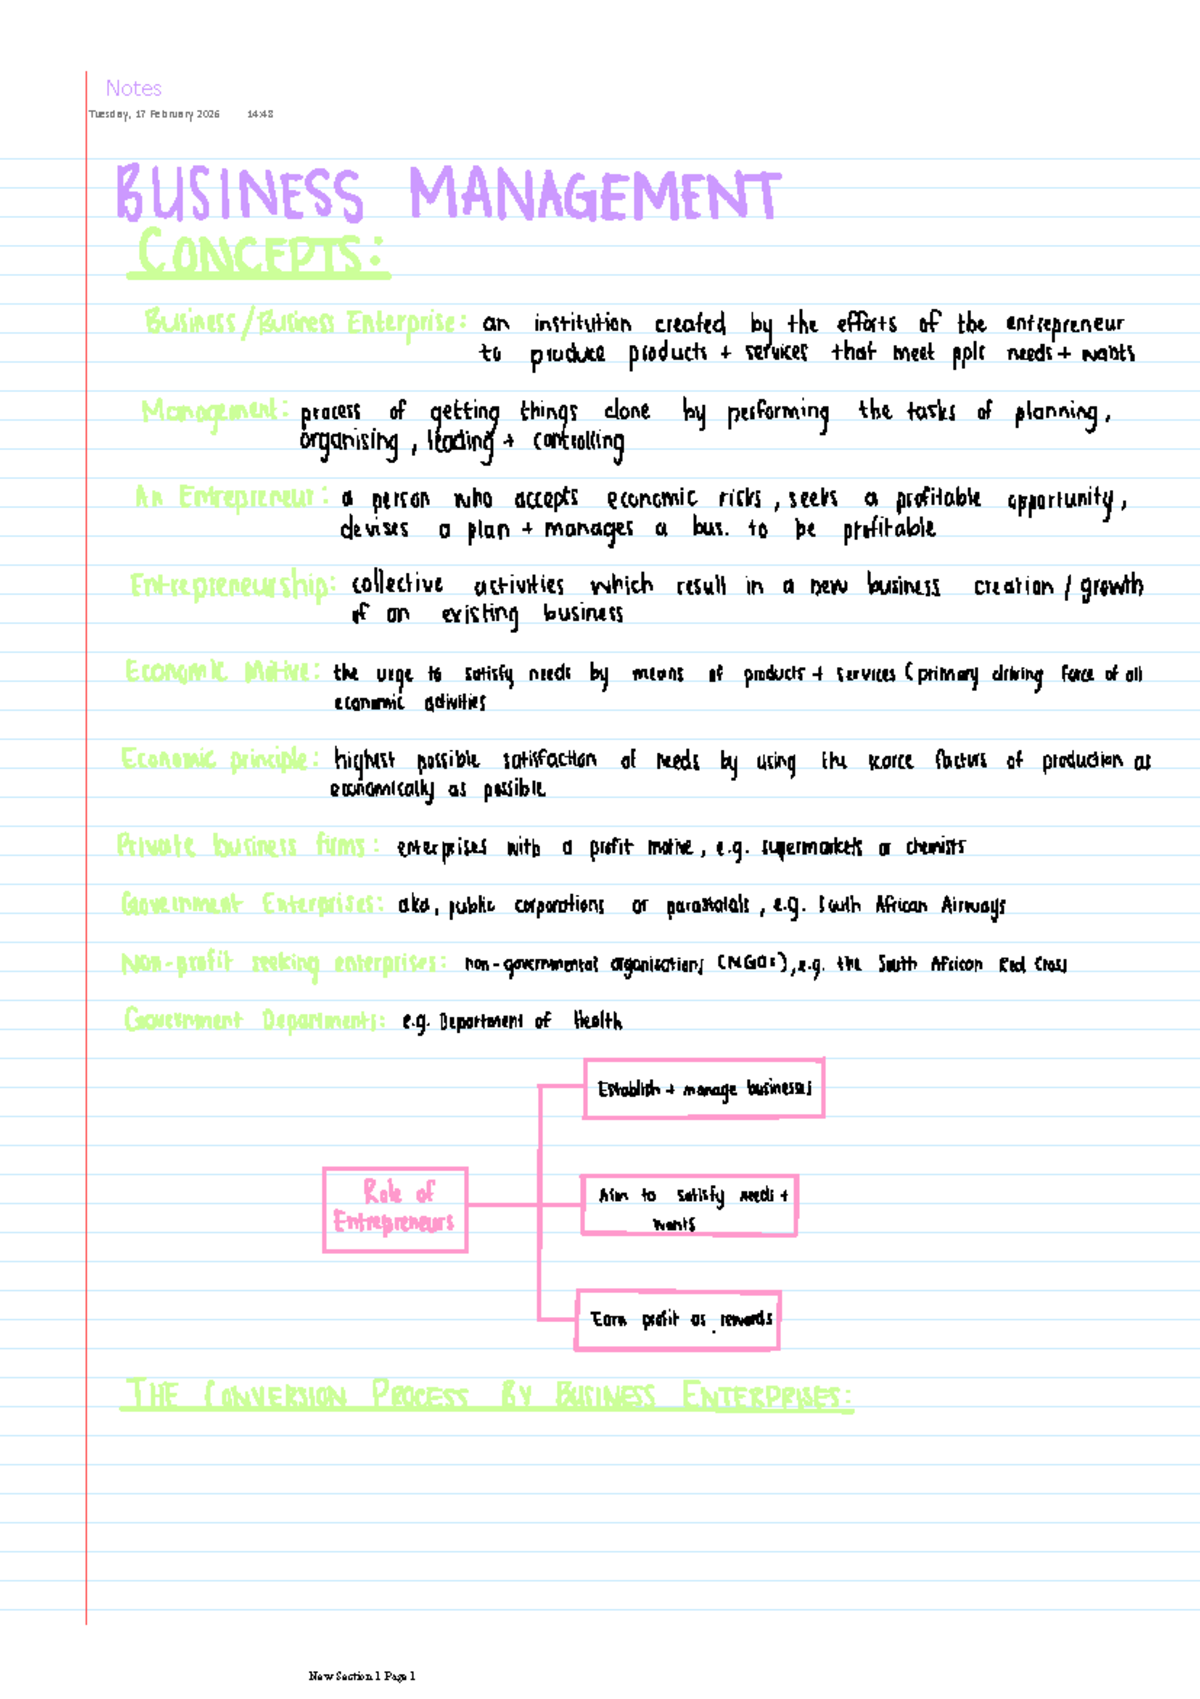 Notes
Tuesday, 17 February 2026 14:48
BUSINESS MANAGEMENT
CONCEPTS:
Business/Business Enterprise: an institution created by the efforts of the entrepreneur
to produce products + services that meet ppls needs + wants
Management: process of getting things done by performing the tasks of planning,
organising, leading + controlling
An Entrepreneur: a person who accepts economic risks, seeks a profitable opportunity,
devises a plan + manages a bus. to be profitable
Entrepreneurship: collective activities which result in a new business creation / growth
of an existing business
Economic Motive: the urge to satisfy needs by means of products + services (primary driving force of all
economic activities
Economic principle: highest possible satisfaction of needs by using the scarce factors of production as
economically as possible
Private business firms: enterprises with a profit motive, e.g. supermarkets or chemists
Government Enterprises: aka, public corporations or parastatals, e.g. South African Airways
Non-profit seeking enterprises: non-governmental organisations (NGOs), e.g. the South African Red Cross
Government Departments: e.g. Department of Health
Establish + manage businesses
Role of
Entrepreneurs
Aim to satisfy needs +
wants
Earn profit as rewards
THE CONVERSION PROCESS BY BUSINESS ENTERPRISES:
New Section 1 Page 1